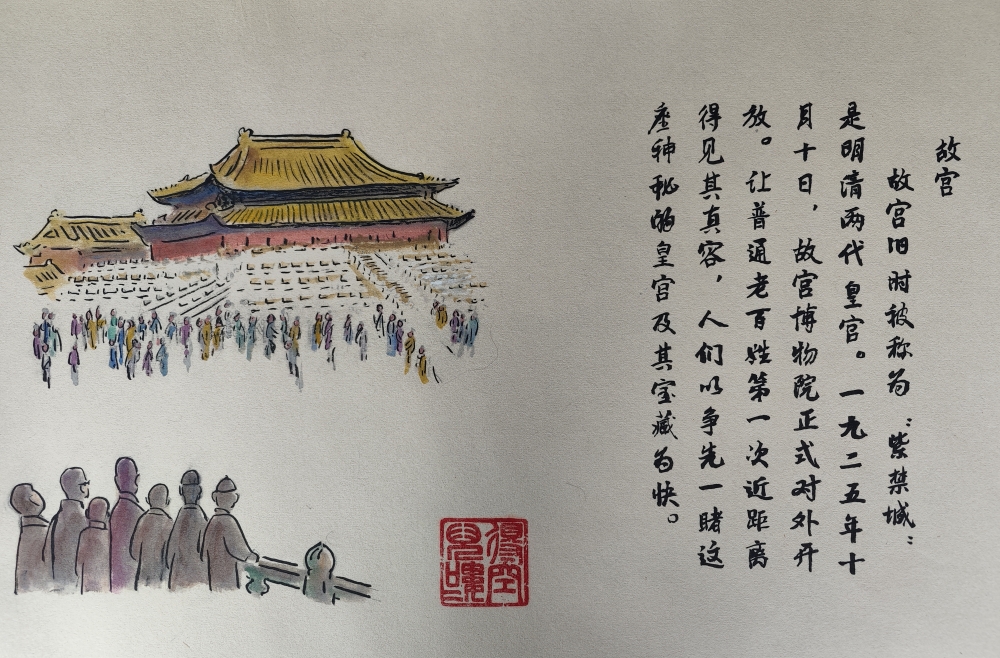 故宫
故宫旧时被称为“紫禁城”
是明清两代皇宫。一九二五年十
月十日，故宫博物院正式对外开
放。让普通老百姓第一次近距离
得见其真容，人们以争先一睹这
座神秘的皇宫及其宝藏为快。